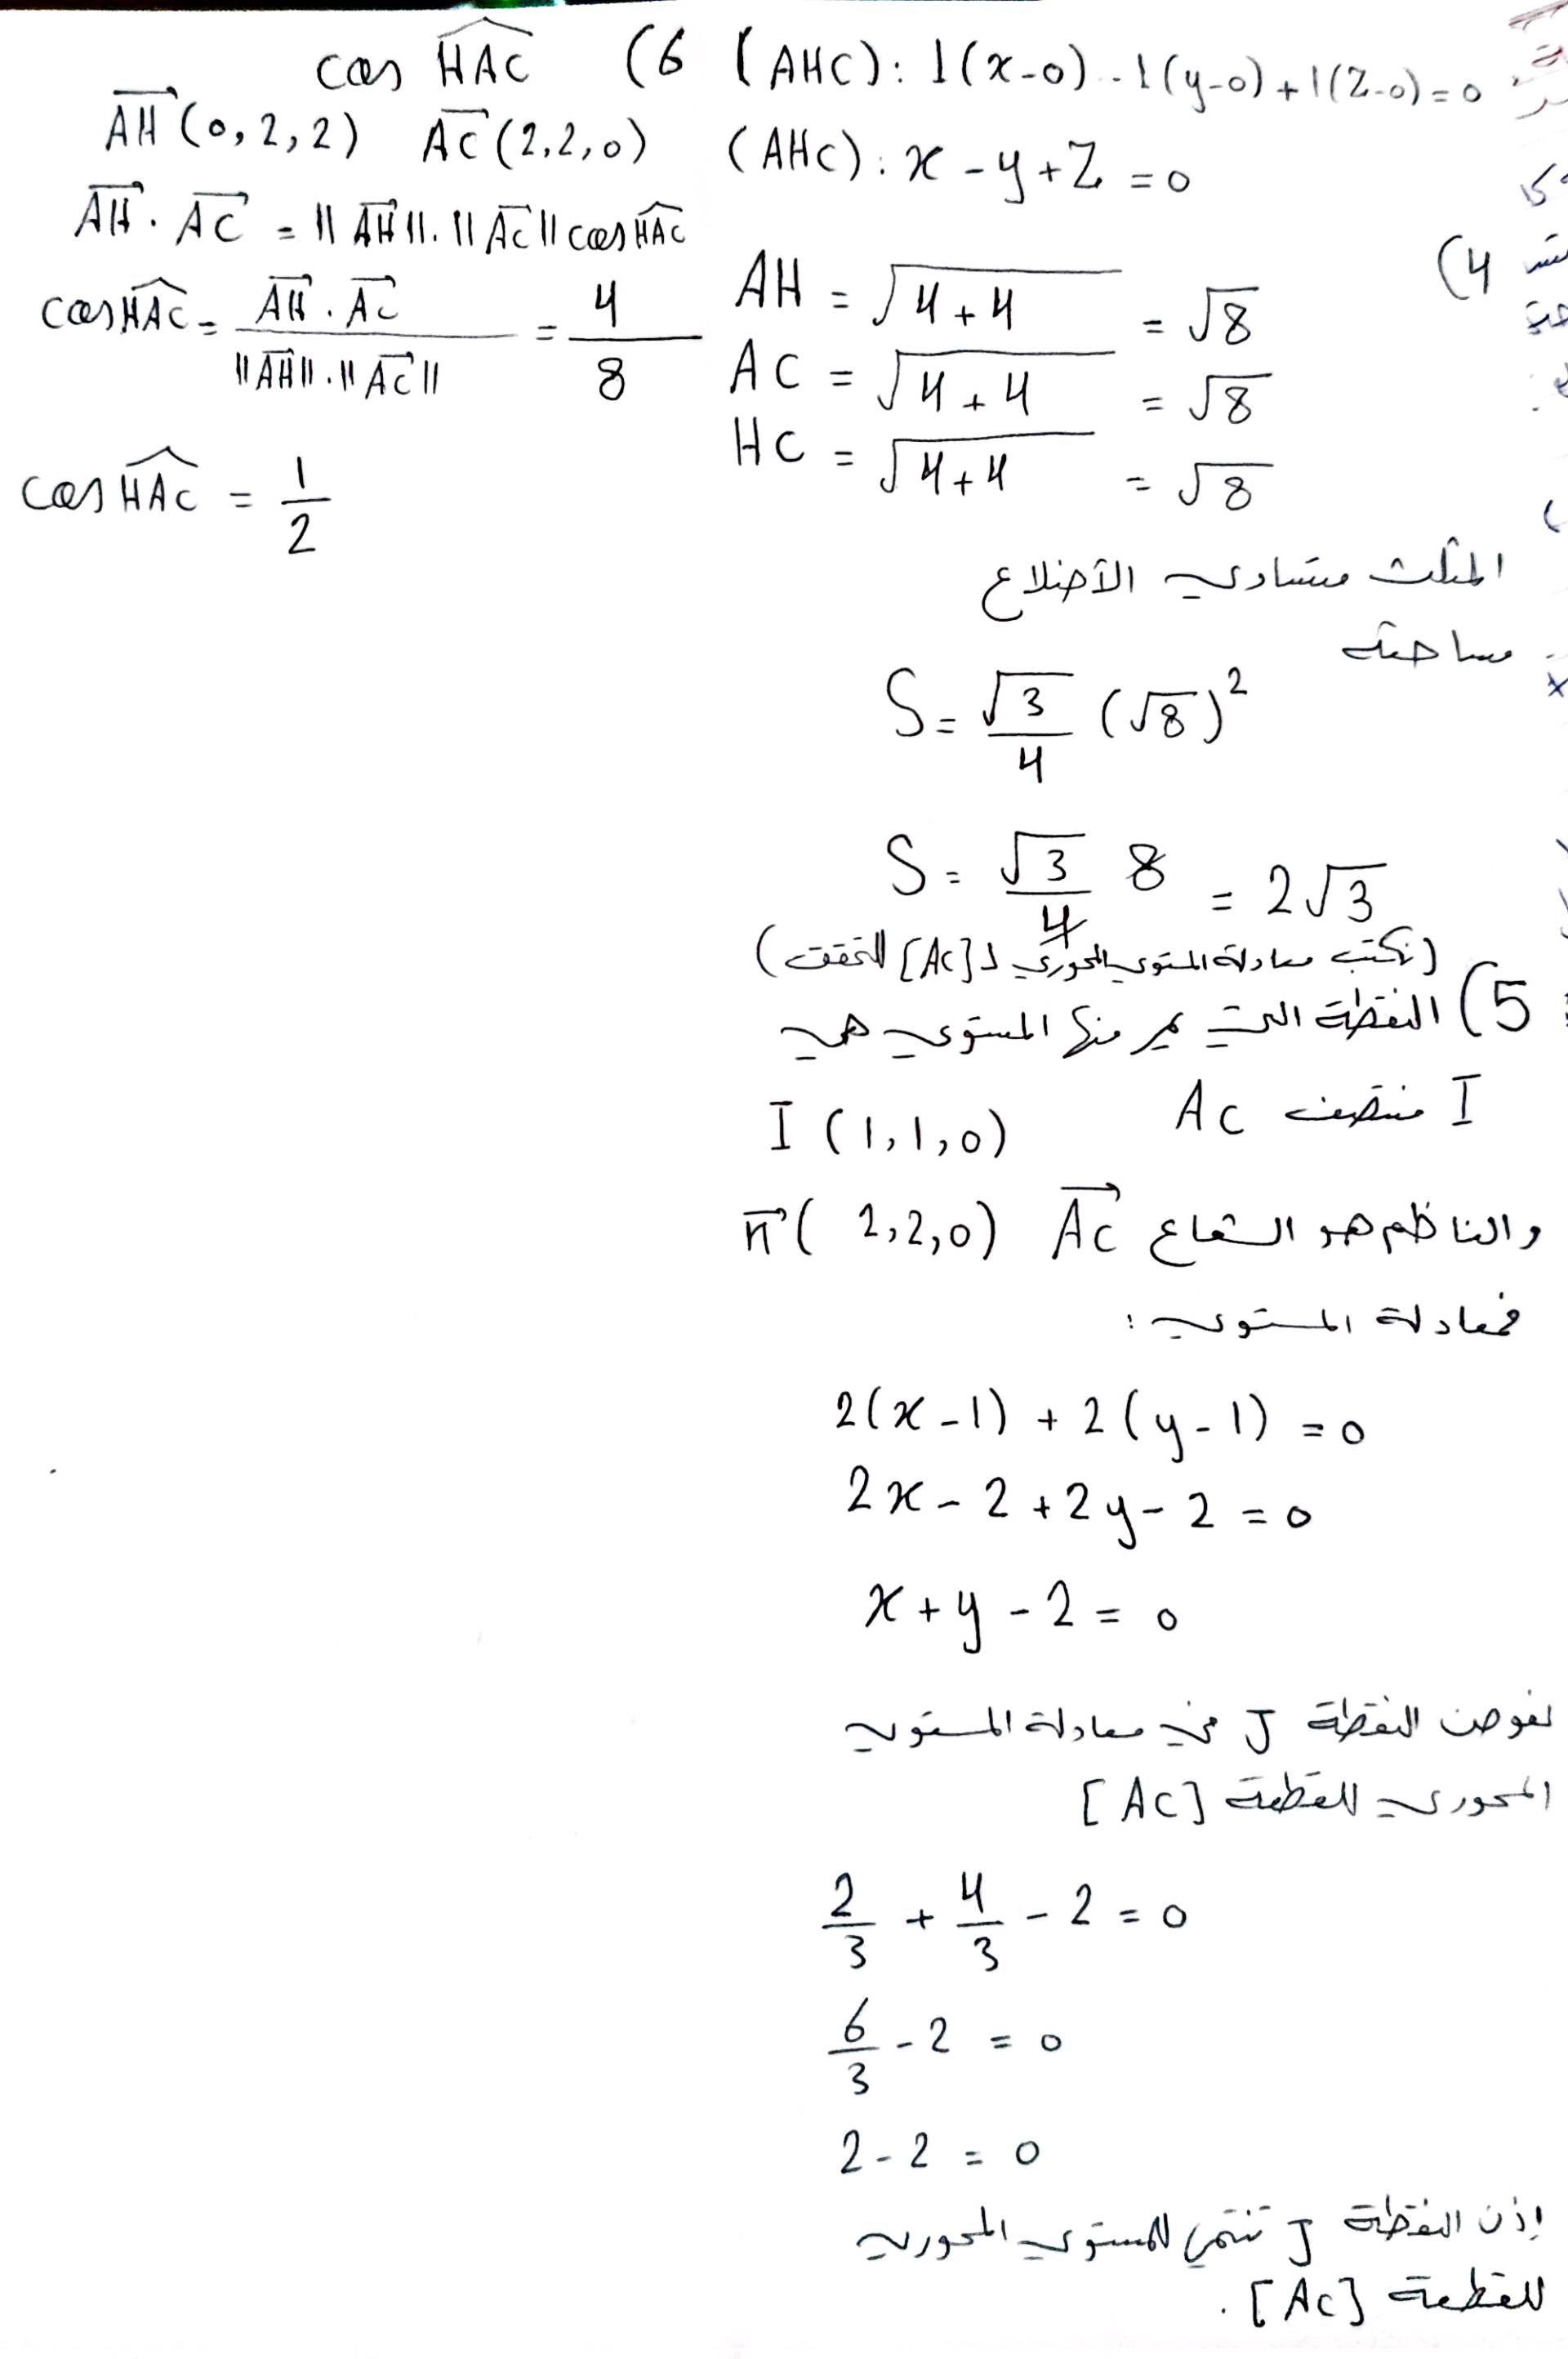 (AHC): 1(x-0) - 1(y-0) + 1(z-0) = 0
(AHC): x - y + z = 0
4)
AH = √(4+4) = √8
AC = √(4+4) = √8
HC = √(4+4) = √8
المثلث متساوي الأضلاع
مساحته
S = √3/4 (√8)²
S = √3/4 8 = 2√3
(نكتب معادلة المستوي المحوري لـ [AC] للتحقق)
5) النقطة التي يمر منها المستوي هي
I منتصف AC I (1,1,0)
والناظم هو الشعاع AC⃗ n⃗(2,2,0)
فمعادلة المستوي :
2(x-1) + 2(y-1) = 0
2x - 2 + 2y - 2 = 0
x + y - 2 = 0
نعوض النقطة J في معادلة المستوي
المحوري للقطعة [AC]
2/3 + 4/3 - 2 = 0
6/3 - 2 = 0
2 - 2 = 0
إذن النقطة J تنتمي للمستوي المحوري
للقطعة [AC].
6) cos HAC
AH⃗(0,2,2) AC⃗(2,2,0)
AH⃗ . AC⃗ = ||AH⃗|| . ||AC⃗|| cos HAC
cos HAC = AH⃗ . AC⃗ / ||AH⃗|| . ||AC⃗|| = 4/8
cos HAC = 1/2